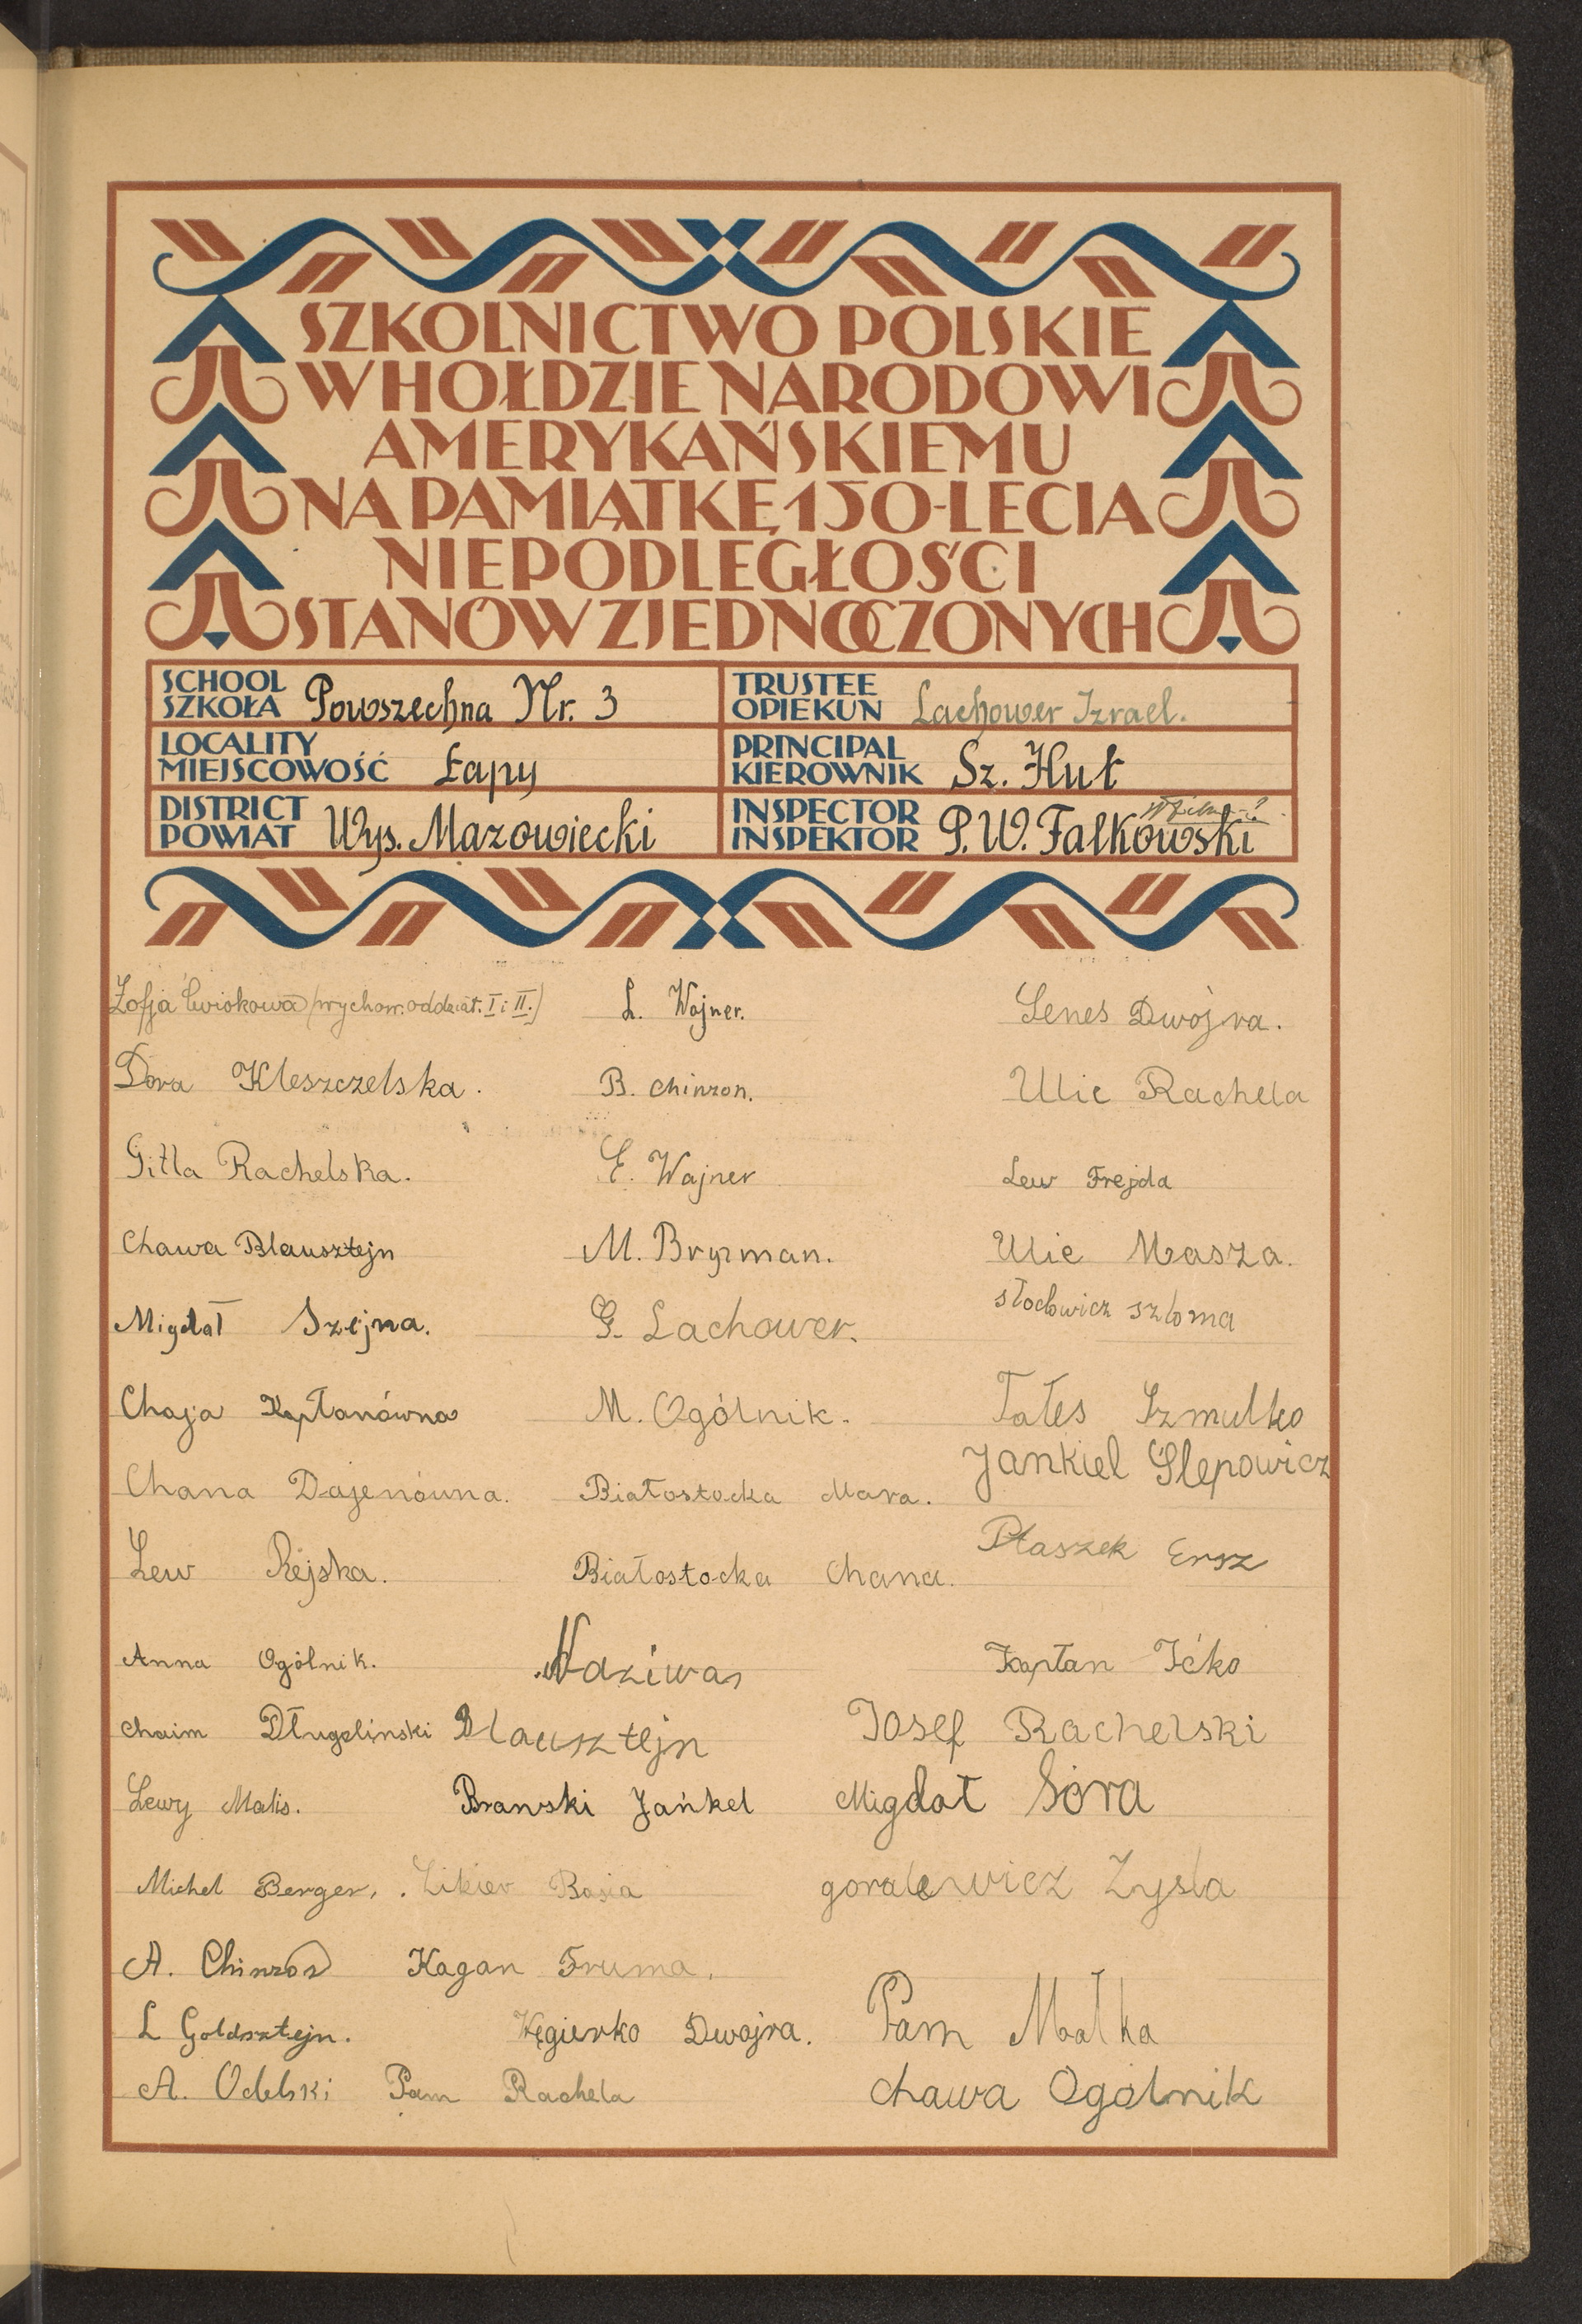 SZKOLNICTWO POLSKIE
W HOŁDZIE NARODOWI
AMERYKAŃSKIEMU
NA PAMIĄTKĘ 150-LECIA
NIEPODLEGŁOŚCI
STANÓW ZJEDNOCZONYCH
SCHOOL
SZKOŁA Powszechna Nr. 3
TRUSTEE
OPIEKUN Lachower Izrael.
LOCALITY
MIEJSCOWOŚĆ Łapy
PRINCIPAL
KIEROWNIK Sz. Hut
DISTRICT
POWIAT Wys. Mazowiecki
INSPECTOR
INSPEKTOR P. W. Fałkowski
Zofja Ćwiokowa (wychow. oddział. I i II.)
Dora Kleszczelska.
Gitla Rachelska.
Chawa Blausztejn
Migdał Szejna.
Chaja Kapłanówna
Chana Dajenówna.
Lew Rejska.
Anna Ogólnik.
Chaim Długolinski
Lewy Malis.
Michel Berger,
A. Chinzon
L Goldsztejn.
A. Odelski
L. Wajner.
B. Chinzon.
E. Wajner
M. Bryzman.
G. Lachower.
M. Ogólnik.
Białostocka Mara.
Białostocka Chana.
Blausztejn
Branski Jankel
Likier Basia
Kagan Fruma.
Węgierko Dwojra.
Pam Rachela
Senes Dwojra.
Ulic Rachela
Lew Frejda
Ulic Masza.
Słodowicz Szloma
Tałes Szmulko
Jankiel Slepowicz
Ptaszek Ersz
Kapłan Icko
Josef Rachelski
Migdał Sora
goralewicz Zysla
Pam Małka
chawa Ogólnik